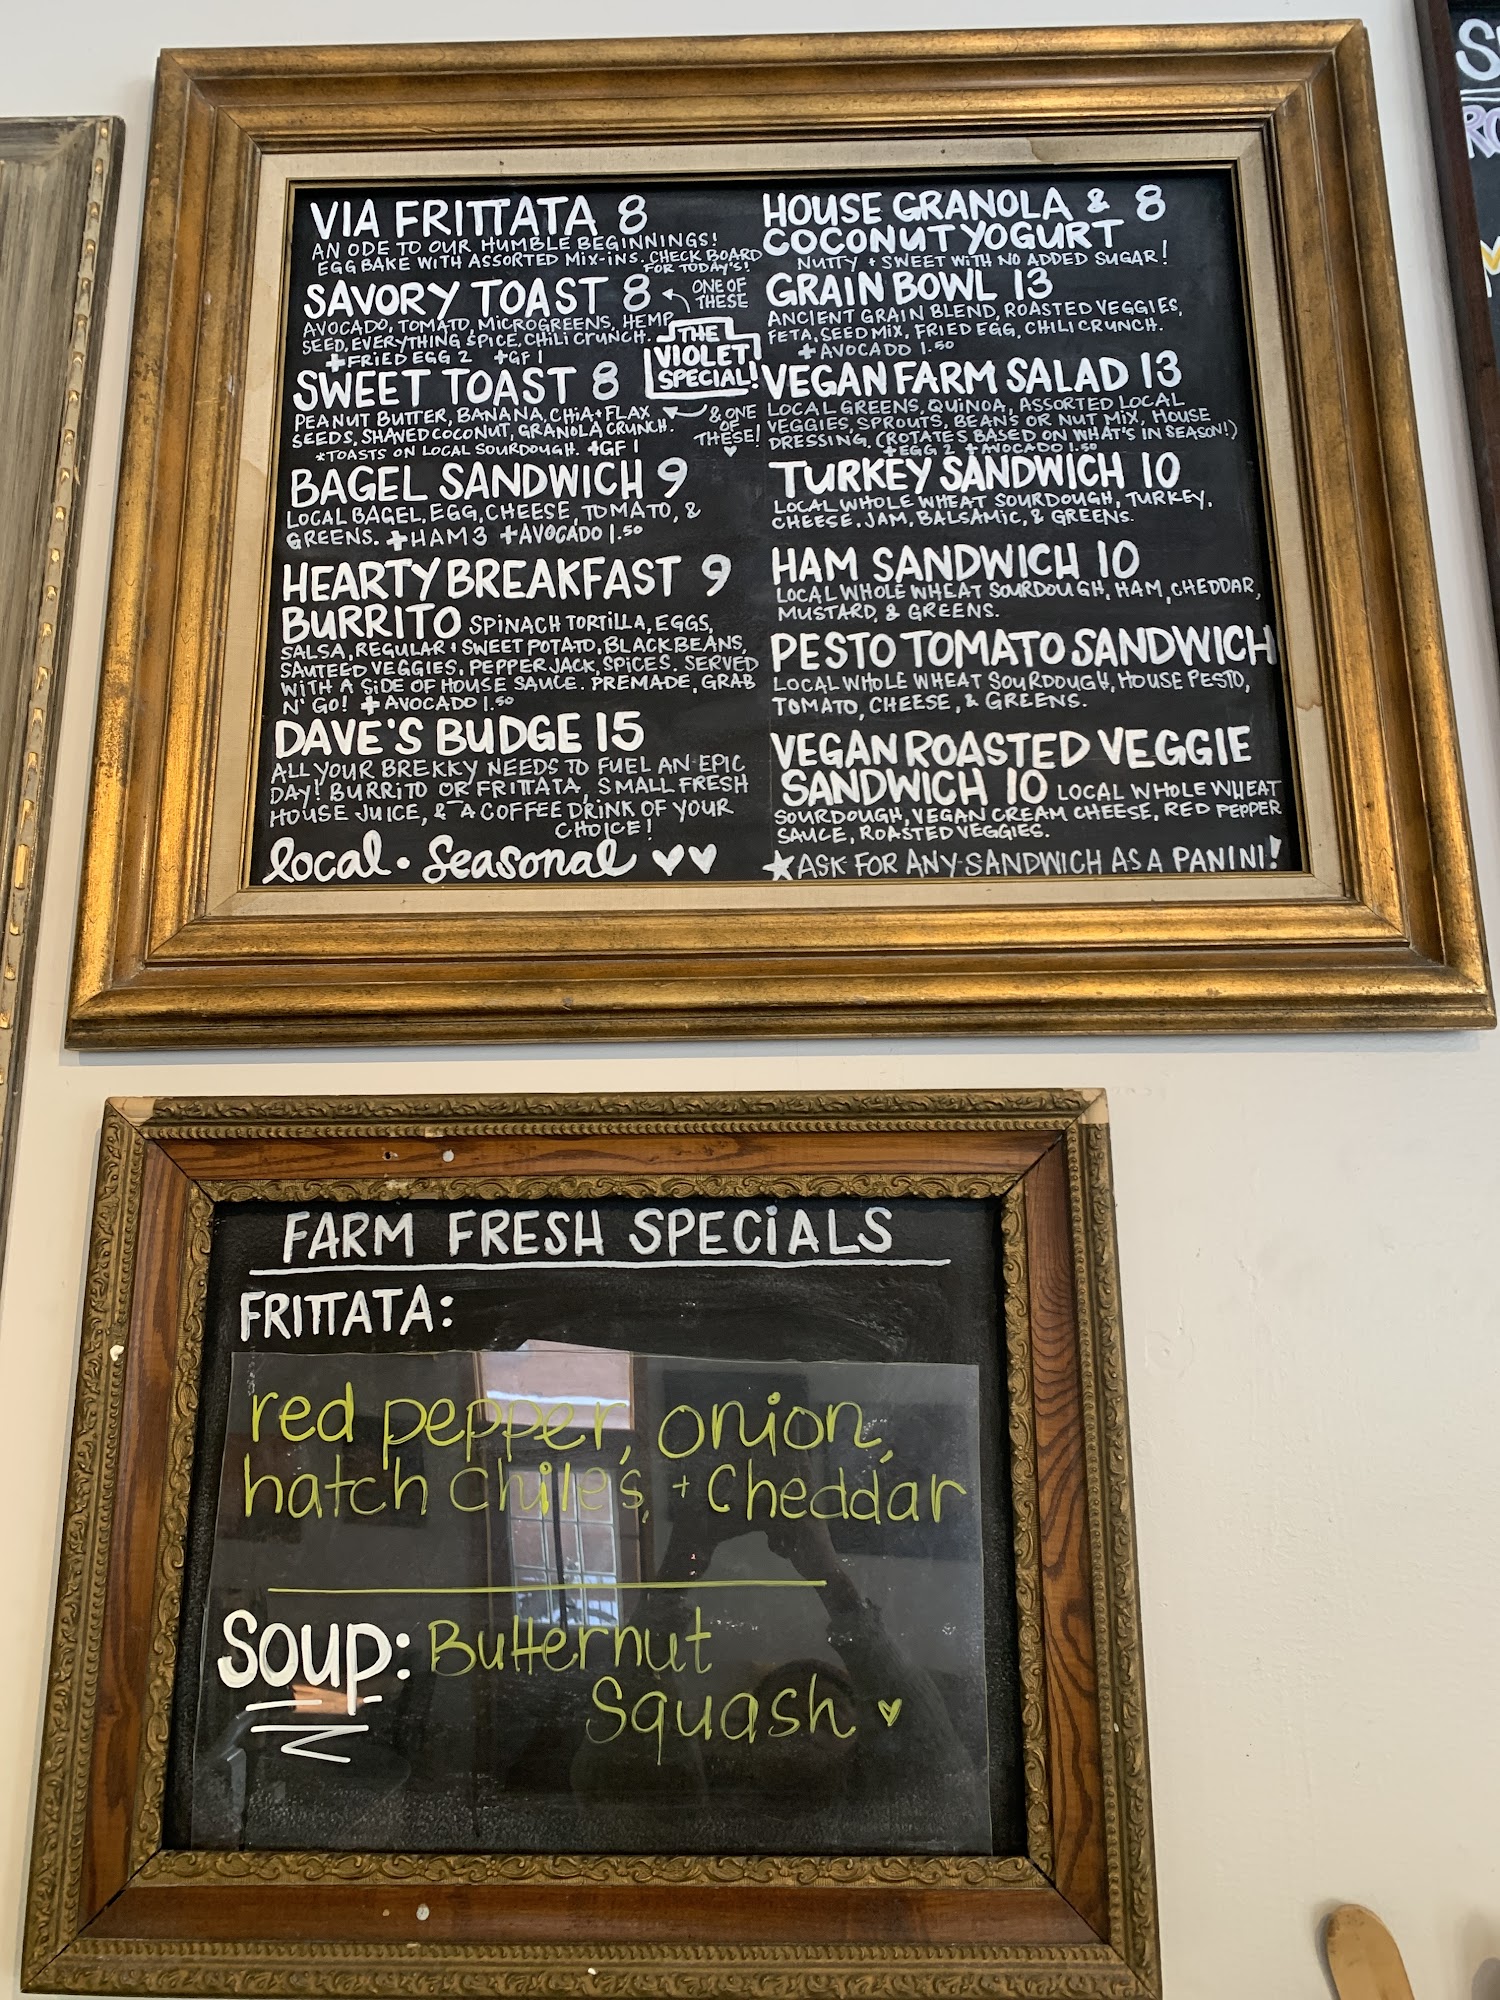 VIA FRITTATA 8
AN ODE TO OUR HUMBLE BEGINNINGS!
EGG BAKE WITH ASSORTED MIX-INS. CHECK BOARD
FOR TODAY'S!
SAVORY TOAST 8
ONE OF
THESE
AVOCADO, TOMATO, MICROGREENS, HEMP
SEED, EVERYTHING SPICE, CHILI CRUNCH.
+FRIED EGG 2 +GF 1
THE
VIOLET
SPECIAL!
SWEET TOAST 8
PEANUT BUTTER, BANANA, CHIA + FLAX
SEEDS, SHAVED COCONUT, GRANOLA CRUNCH.
*TOASTS ON LOCAL SOURDOUGH. +GF 1
& ONE
OF
THESE!
BAGEL SANDWICH 9
LOCAL BAGEL, EGG, CHEESE, TOMATO, &
GREENS. +HAM 3 +AVOCADO 1.50
HEARTY BREAKFAST 9
BURRITO SPINACH TORTILLA, EGGS,
SALSA, REGULAR + SWEET POTATO, BLACK BEANS,
SAUTEED VEGGIES, PEPPER JACK, SPICES. SERVED
WITH A SIDE OF HOUSE SAUCE. PREMADE, GRAB
N' GO! + AVOCADO 1.50
DAVE'S BUDGE 15
ALL YOUR BREKKY NEEDS TO FUEL AN EPIC
DAY! BURRITO OR FRITTATA, SMALL FRESH
HOUSE JUICE, & A COFFEE DRINK OF YOUR
CHOICE!
local • Seasonal ♥♥
HOUSE GRANOLA & 8
COCONUT YOGURT
NUTTY + SWEET WITH NO ADDED SUGAR!
GRAIN BOWL 13
ANCIENT GRAIN BLEND, ROASTED VEGGIES,
FETA, SEED MIX, FRIED EGG, CHILI CRUNCH.
+ AVOCADO 1.50
VEGAN FARM SALAD 13
LOCAL GREENS, QUINOA, ASSORTED LOCAL
VEGGIES, SPROUTS, BEANS OR NUT MIX, HOUSE
DRESSING. (ROTATES BASED ON WHAT'S IN SEASON!)
+EGG 2 +AVOCADO 1.50
TURKEY SANDWICH 10
LOCAL WHOLE WHEAT SOURDOUGH, TURKEY,
CHEESE, JAM, BALSAMIC, & GREENS.
HAM SANDWICH 10
LOCAL WHOLE WHEAT SOURDOUGH, HAM, CHEDDAR,
MUSTARD, & GREENS.
PESTO TOMATO SANDWICH
LOCAL WHOLE WHEAT SOURDOUGH, HOUSE PESTO,
TOMATO, CHEESE, & GREENS.
VEGAN ROASTED VEGGIE
SANDWICH 10 LOCAL WHOLE WHEAT
SOURDOUGH, VEGAN CREAM CHEESE, RED PEPPER
SAUCE, ROASTED VEGGIES.
★ASK FOR ANY SANDWICH AS A PANINI!
FARM FRESH SPECIALS
FRITTATA:
red pepper, onion,
hatch chiles, + Cheddar
Soup: Butternut
Squash ♥